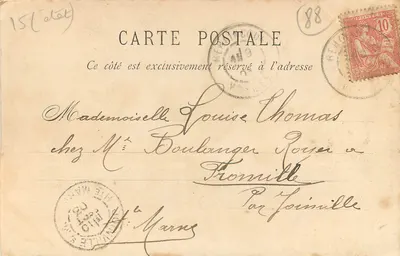 15 (état)
88
CARTE POSTALE
Ce côté est exclusivement réservé à l'adresse
10
Mademoiselle Louise Thomas
chez Mr Boulanger Royer a
Fronville
Par Joinville
Hte Marne